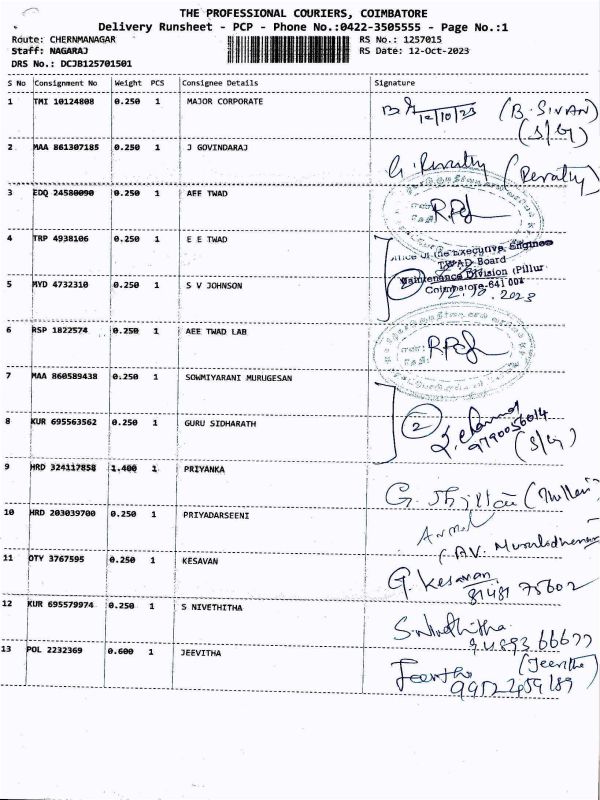 THE PROFESSIONAL COURIERS, COIMBATORE
Delivery Runsheet - PCP - Phone No.:0422-3505555 - Page No.:1
Route: CHERNMANAGAR RS No.: 1257015
Staff: NAGARAJ RS Date: 12-Oct-2023
DRS No.: DCJB125701501
S No Consignment No Weight PCS Consignee Details Signature
1 TMI 10124808 0.250 1 MAJOR CORPORATE
12/10/23 (B. SIVAN)
(S/G)
2 MAA 861307185 0.250 1 J GOVINDARAJ
G. Revathy (Revathy)
3 EDQ 24580090 0.250 1 AEE TWAD
4 TRP 4938106 0.250 1 E E TWAD
Office of the Executive Engineer
TWAD Board
Maintenance Division (Pillur
Coimbatore-641 001
5 MYD 4732310 0.250 1 S V JOHNSON
2
12.10.2023
6 RSP 1822574 0.250 1 AEE TWAD LAB
7 MAA 860589438 0.250 1 SOWMIYARANI MURUGESAN
8 KUR 695563562 0.250 1 GURU SIDHARATH
2
9790056014
(S/G)
9 HRD 324117858 1.400 1 PRIYANKA
10 HRD 203039700 0.250 1 PRIYADARSEENI
11 OTY 3767595 0.250 1 KESAVAN
G. Kesavan
81481 75602
12 KUR 695579974 0.250 1 S NIVETHITHA
S. Nivethitha
94893 66677
13 POL 2232369 0.600 1 JEEVITHA
Jeevitha (Jeevitha)
9952459189